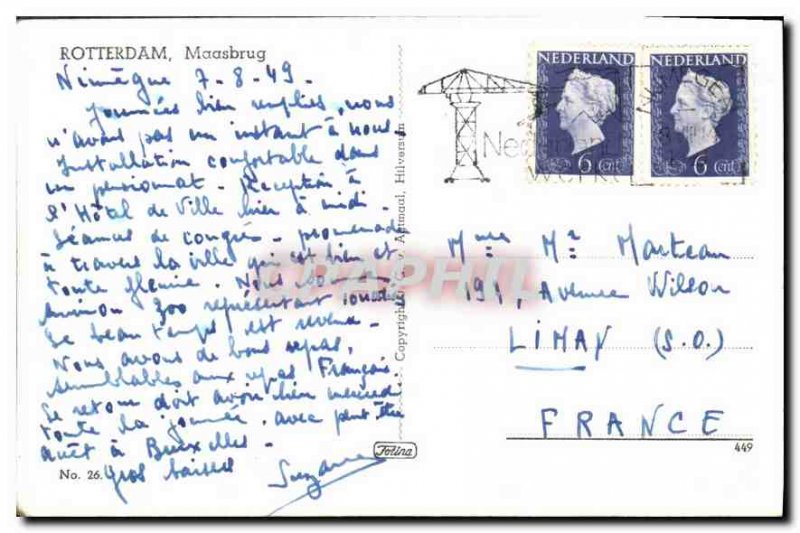 ROTTERDAM, Maasbrug
Nimègue 7-8-49-
Journées bien remplies, nous
n'avons pas un instant à nous.
Installation confortable dans
un pensionnat. Réception à
l'Hôtel de Ville hier à midi.
Séances de congrès - promenade
à travers la ville qui est bien et
toute fleurie. Nous sommes
environ 300 représentant
Le beau temps est revenu.
Nous avons de bons repas,
semblables aux repas Français.
Le retour doit avoir lieu mercredi
toute la journée, avec peut être
arrêt à Bruxelles.
Gros baisers
Suzanne
No. 26.
Fotina
Hilversum
Copyright
CRAPHIL
NEDERLAND
6 Cent
NEDERLAND
6 Cent
Mme Mr Marteau
191, Avenue Wilson
LIMAY (S.O.)
FRANCE
449